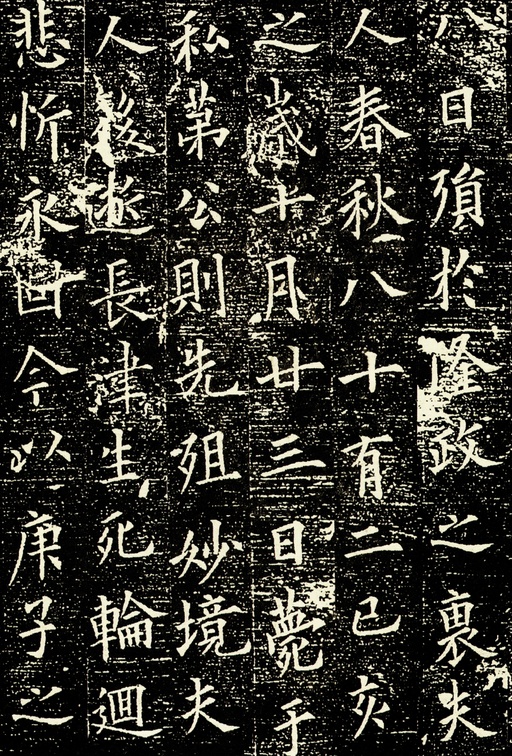 八日殞於隆政之裏夫
人春秋八十有二己亥
之歲十月廿三日薨于
私第公則先殂妙境夫
人後長津生死輪迴
悲忻永今以庚子之